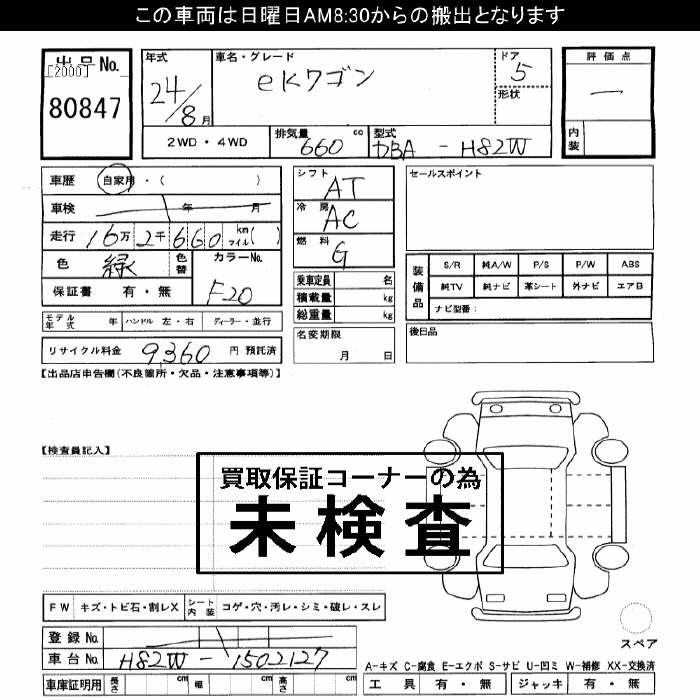 この車両は日曜日AM8:30からの搬出となります
出品No.
[2000]
80847
年式
24/8月
車名・グレード
eKワゴン
ドア
5
形状
評価点
―
内装
2WD・4WD
排気量
660 cc
型式
DBA - H82W
車歴 自家用・( )
車検 年 月
走行 16万2千660 km マイル( )
色 緑 色替
カラーNo.
F20
保証書 有・無
モデル年式 年 ハンドル 左・右 ディーラー・並行
リサイクル料金 9,360 円 預託済
シフト
AT
冷房
AC
燃料
G
乗車定員 名
積載量 kg
総重量 kg
名変期限
月 日
セールスポイント
装備品
S/R 純A/W P/S P/W ABS
純TV 純ナビ 革シート 外ナビ エアB
ナビ型番:
後日品
【出品店申告欄(不良箇所・欠品・注意事項等)】
【検査員記入】
買取保証コーナーの為
未検査
FW キズ・トビ石・割レX シート内装 コゲ・穴・汚レ・シミ・破レ・スレ
登録No.
車台No. H82W-1502127
車庫証明用 長さ cm 幅 cm 高さ cm
スペア
A-キズ C-腐食 E-エクボ S-サビ U-凹ミ W-補修 XX-交換済
工具 有・無 ジャッキ 有・無